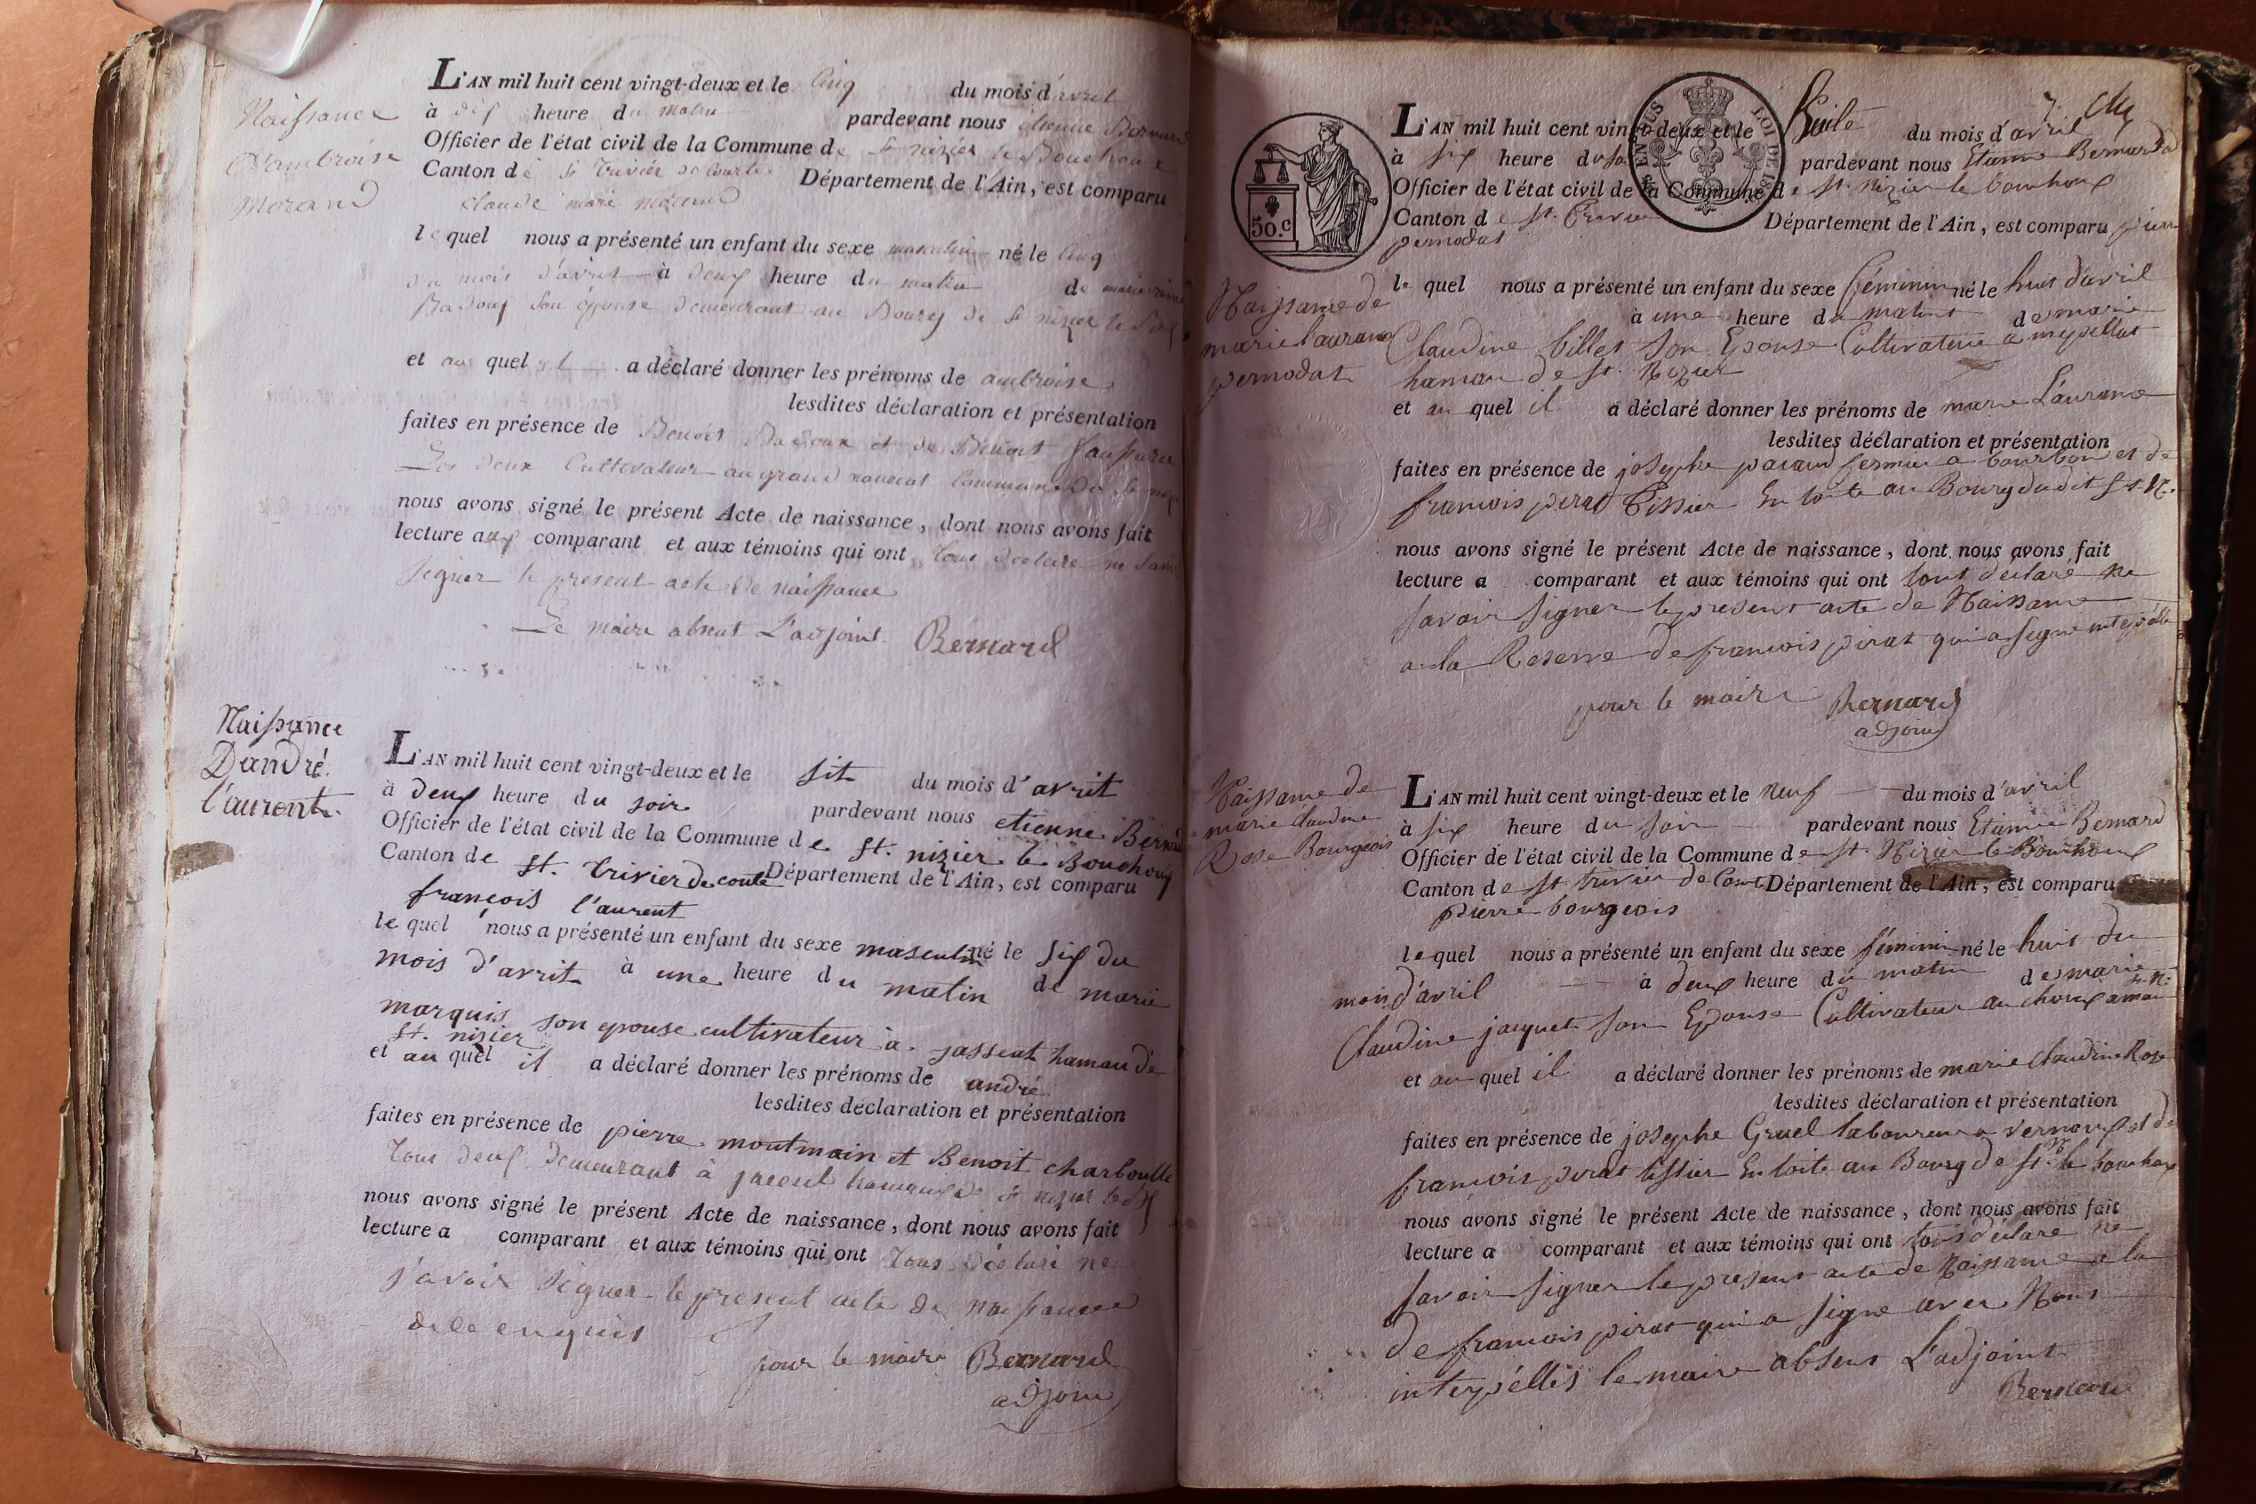 Naissance
D'ambroise
Morand
L'AN mil huit cent vingt-deux et le cinq du mois d'avril
à dix heure du matin pardevant nous etienne Bernard
Officier de l'état civil de la Commune de St nizier le Bouchoux
Canton de St trivier de Courtes Département de l'Ain, est comparu
claude marie morand
le quel nous a présenté un enfant du sexe masculin né le cinq
du mois d'avril à deux heure du matin de marie
Badoux son épouse demeurant au Bourg de St nizier le
et au quel il a déclaré donner les prénoms de ambroise
lesdites déclaration et présentation
faites en présence de Benoit Badoux et de Benoit
Les deux Cultivateur au grand Commune de St
nous avons signé le présent Acte de naissance, dont nous avons fait
lecture aux comparant et aux témoins qui ont tous déclaré ne
signer le present acte de naissance
Le maire absent L'adjoint Bernard
Naissance
D'andré
l'aurent
L'AN mil huit cent vingt-deux et le sit du mois d'avrit
à deux heure du soir pardevant nous etienne Bernard
Officier de l'état civil de la Commune de St. nizier le Bouchoux
Canton de St. trivier de courte Département de l'Ain, est comparu
françois l'aurent
le quel nous a présenté un enfant du sexe masculin né le six du
mois d'avrit à une heure du matin de marie
marquis son epouse cultivateur à jasseut hamau de
St. nizier
et au quel il a déclaré donner les prénoms de andré
lesdites déclaration et présentation
faites en présence de pierre moutmain et Benoit charboulle
tous deux demeurant à de St nizier le
nous avons signé le présent Acte de naissance, dont nous avons fait
lecture a comparant et aux témoins qui ont tous déclaré ne
savoir signer le present acte de naissance
de ce enquis
pour le maire Bernard
adjoint
7.
50.c
LOI DE
L'AN mil huit cent vingt-deux et le huite du mois d'avril
à six heure du soir pardevant nous Etienne Bernard
Officier de l'état civil de la Commune de St. Nizier le bouchoux
Canton de St. trivier Département de l'Ain, est comparu pierre
pernodat
Naissance de
marie laurance
pernodat
le quel nous a présenté un enfant du sexe féminin né le huit d'avril
à une heure du matin de marie
Claudine billet son Epouse Cultivateur a
hamau de St. Nizier
et au quel il a déclaré donner les prénoms de marie L'aurance
lesdites déclaration et présentation
faites en présence de josephe pacaud fermier a bourbon et de
francois pirat tissier En toile au Bourg dudit St. N.
nous avons signé le présent Acte de naissance, dont nous avons fait
lecture a comparant et aux témoins qui ont tous déclaré ne
savoir signer le present acte de Naissance
a la Reserve de francois pirat qui a signe
pour le maire Bernard
adjoint
Naissance de
marie claudine
Rose Bourgeois
L'AN mil huit cent vingt-deux et le neuf du mois d'avril
à six heure du soir pardevant nous Etienne Bernard
Officier de l'état civil de la Commune de St. Nizier le Bouchoux
Canton de St trivier de Court Département de l'Ain, est comparu
pierre bourgeois
le quel nous a présenté un enfant du sexe féminin né le huit du
mois d'avril à deux heure du matin de marie
Claudine jacquet son Epouse Cultivateur au choux amau St. N.
et au quel il a déclaré donner les prénoms de marie Claudine Rose
lesdites déclaration et présentation
faites en présence de josephe Gruel laboureur a vernoux et de
francois pirat tissier En toile au Bourg de St. N. le bouchoux
nous avons signé le présent Acte de naissance, dont nous avons fait
lecture a comparant et aux témoins qui ont tous déclaré ne
savoir signer le present acte de Naissance a la
de francois pirat qui a signe avec Nous
interpéllés le maire absent L'adjoint
Bernard